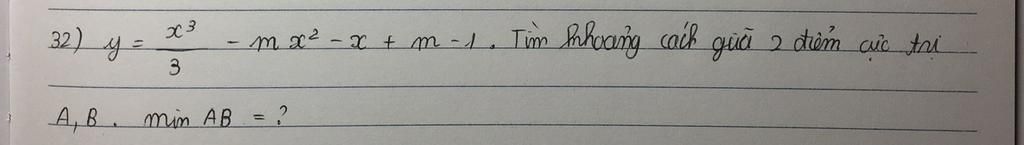 32) y = x³/3 - mx² - x + m - 1. Tìm khoảng cách giữa 2 điểm cực trị
A, B. min AB = ?